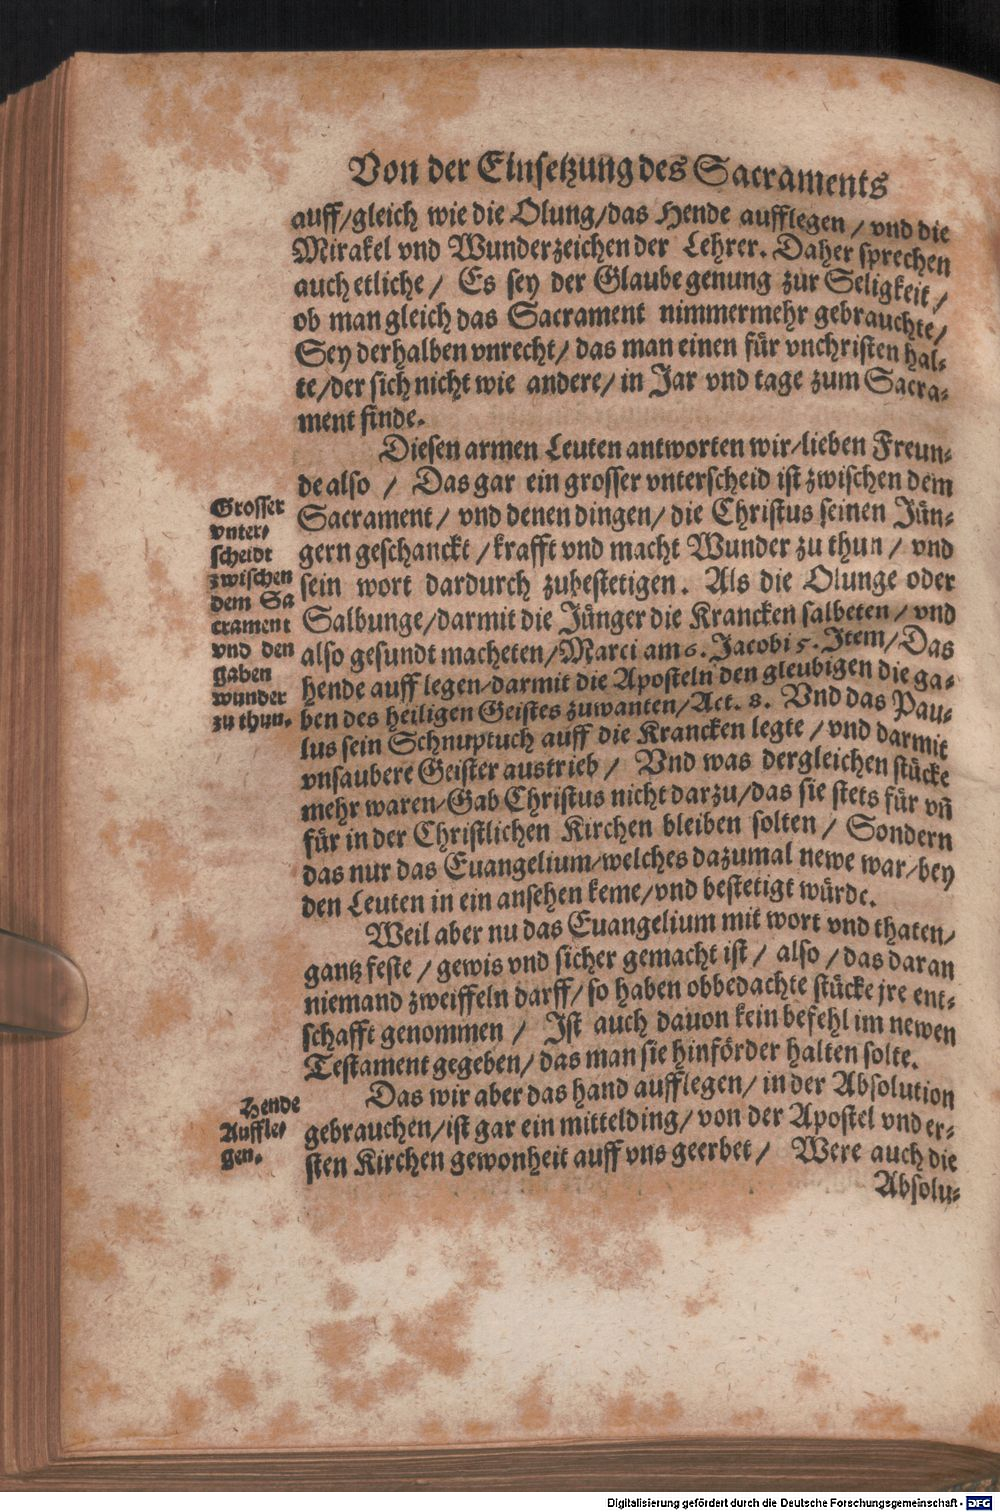 Von der Einsetzung des Sacraments
auff/gleich wie die Olung/das Hende aufflegen / vnd die
Mirakel vnd Wunderzeichen der Lehrer. Daher sprechen
auch etliche / Es sey der Glaube genung zur Seligkeit /
ob man gleich das Sacrament nimmermehr gebrauchte /
Sey derhalben vnrecht / das man einen für vnchristen hal-
te/der sich nicht wie andere / in Jar vnd tage zum Sacra-
ment finde.
Diesen armen Leuten antworten wir/lieben Freun-
de also / Das gar ein grosser vnterscheid ist zwischen dem
Sacrament / vnd denen dingen / die Christus seinen Jün-
gern geschanckt / krafft vnd macht Wunder zu thun / vnd
sein wort dardurch zubestetigen. Als die Olunge oder
Salbunge/darmit die Jünger die Krancken salbeten / vnd
also gesundt macheten/Marci am 6. Jacobi 5. Item/Das
hende auff legen/darmit die Aposteln den gleubigen die ga-
ben des heiligen Geistes zuwanten/Act. 8. Vnd das Pau-
lus sein Schnuptuch auff die Krancken legte / vnd darmit
vnsaubere Geister austrieb / Vnd was dergleichen stücke
mehr waren/Gab Christus nicht darzu/das sie stets für vñ
für in der Christlichen Kirchen bleiben solten / Sondern
das nur das Euangelium/welches dazumal newe war/bey
den Leuten in ein ansehen keme/vnd bestetigt würde.
Weil aber nu das Euangelium mit wort vnd thaten/
gantz feste / gewis vnd sicher gemacht ist / also / das daran
niemand zweiffeln darff/ so haben obbedachte stücke jre ent-
schafft genommen / Ist auch dauon kein befehl im newen
Testament gegeben / das man sie hinförder halten solte.
Das wir aber das hand aufflegen / in der Absolution
gebrauchen/ist gar ein mittelding/ von der Apostel vnd er-
sten Kirchen gewonheit auff vns geerbet / Were auch die
Absolu-
Grosser
vnter-
scheidt
zwischen
dem Sa
crament
vnd den
gaben
wunder
zu thun.
Hende
Auffle-
gen.
Digitalisierung gefördert durch die Deutsche Forschungsgemeinschaft - DFG